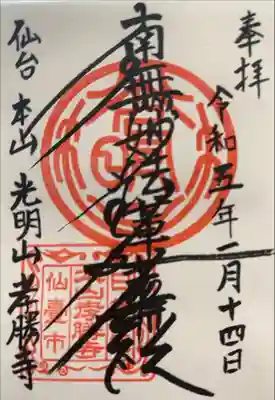 奉拝
令和五年一月十四日
南無妙法蓮華経
仙台 本山 光明山 孝勝寺
仙臺市